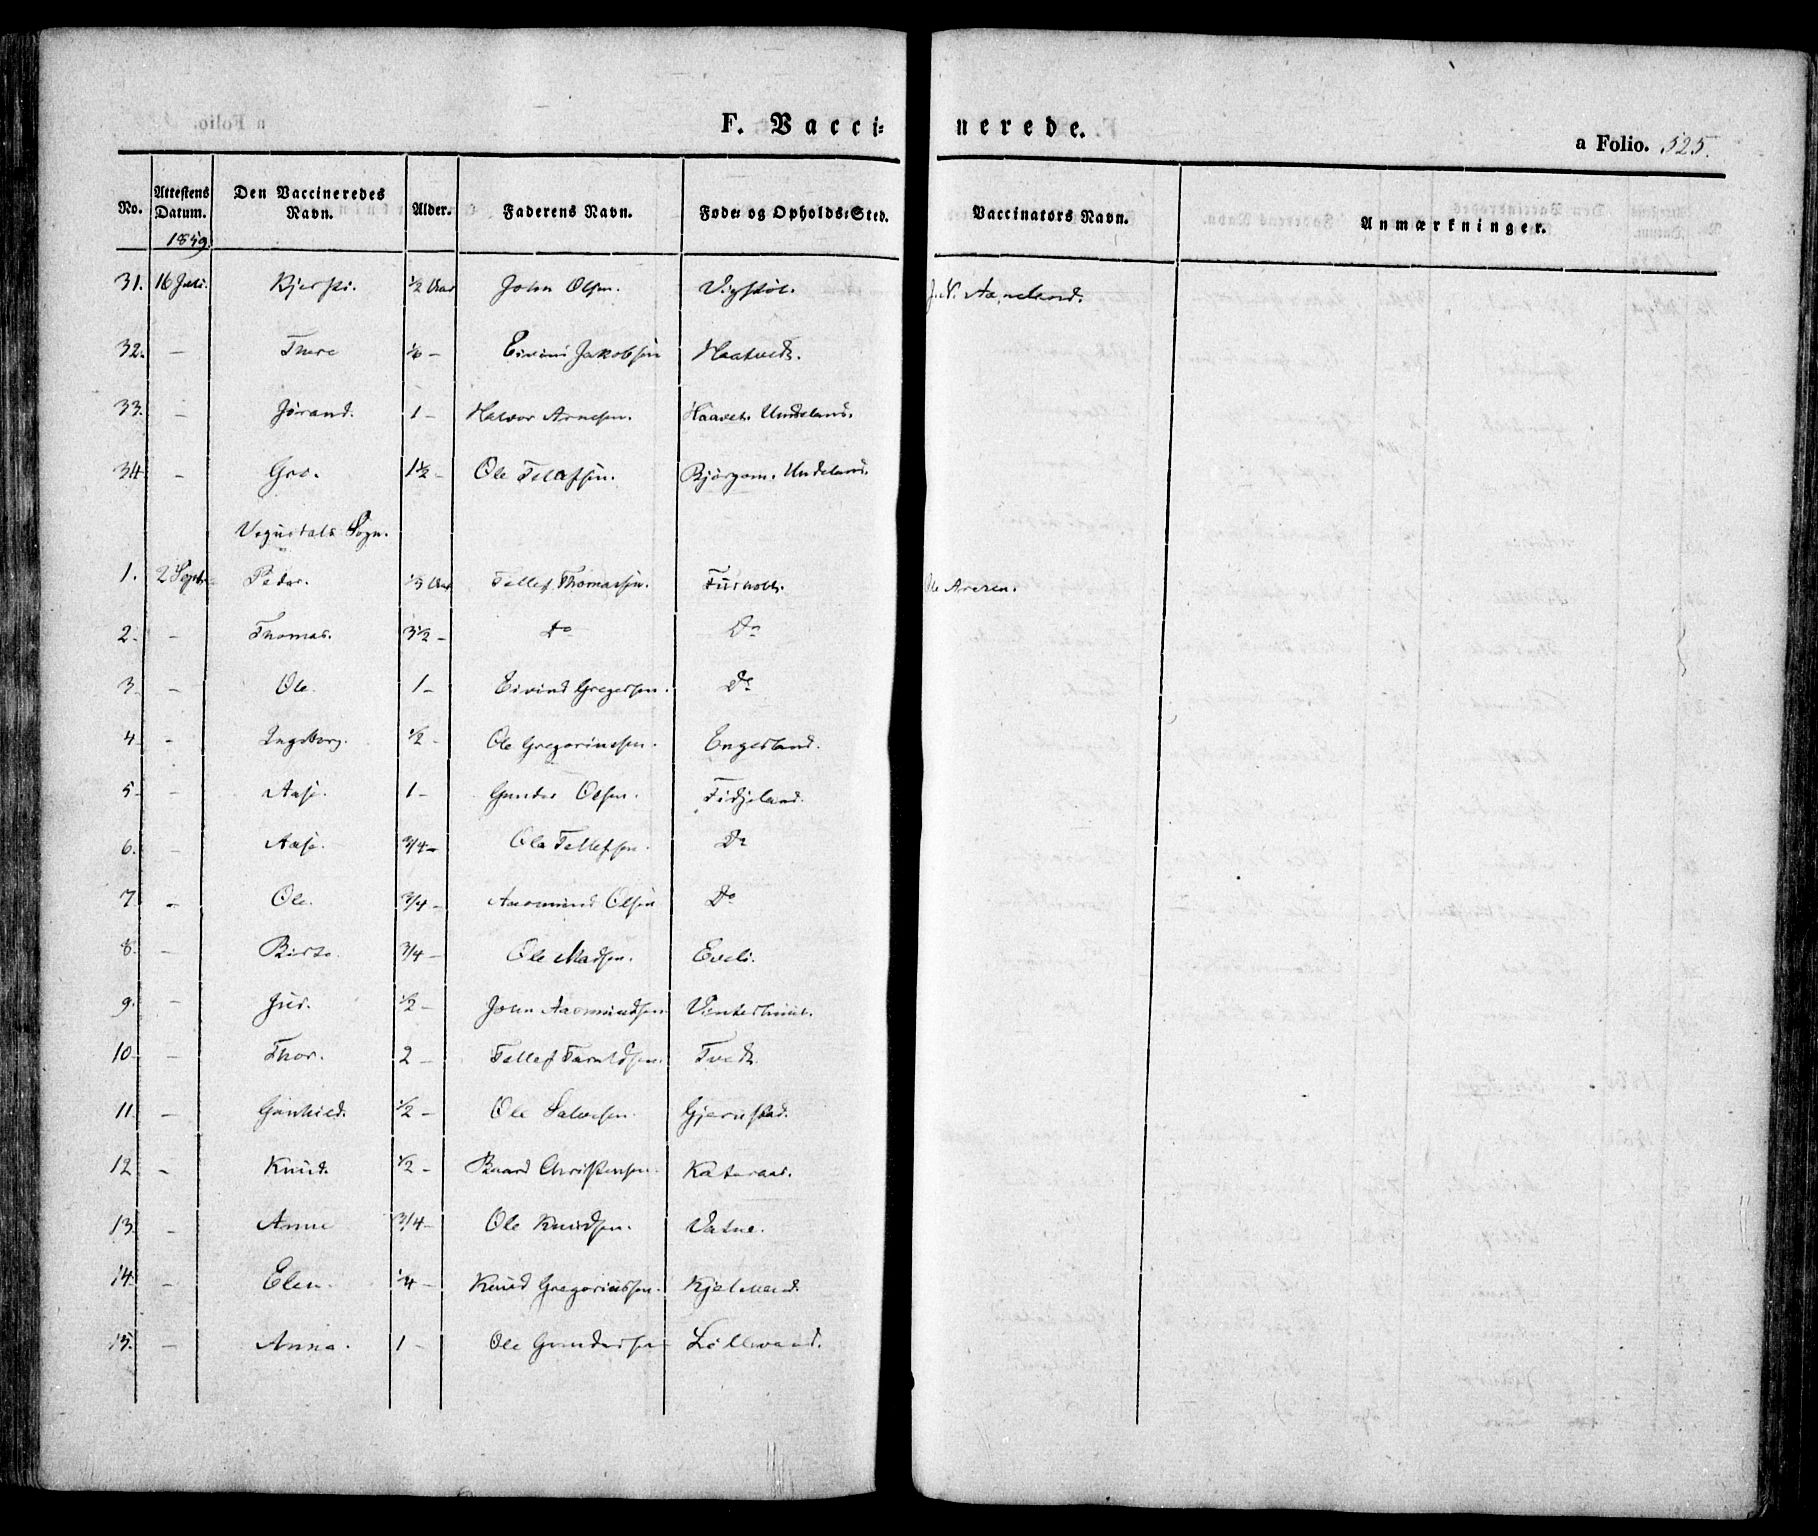 F. Vaccinerede.
a Folio. 525.
No. Attestens Datum. Den Vaccineredes Navn. Alder. Faderens Navn. Føde- og Opholds-Sted. Vaccinators Navn. Anmærkninger.
1859.
31. 16 Juli. ½ Aar John Olsen.
32. — Thore — Eivind Jakobsen Haatvedt.
33. — Jørand. 1 — Halvor Arnesen. Undeland.
34. — Gro. 1½ — Ole Tellefsen. Undeland.
Vegusdals Sogn.
1. 2 Septr Peder. ⅓ Aar Tellef Thomassen. Furholt. Ole Aresen.
2. — Thomas. 3½ — Do Do
3. — Ole. 1 — Eivind Gregersen. Do
4. — Ingeborg. ½ — Ole Gregoriussen. Engesland.
5. — Aase. 1 — Gunder Olsen. Fidjeland.
6. — Aase. 3/4 — Ole Tellefsen. Do
7. — Ole. 3/4 — Aasmund Olsen Do
8. — Birte. 3/4 — Ole Madsen. Eveli.
9. — ½ — John Aasmundsen
10. — Thor. 2 — Tellef Tvedt.
11. — Gunhild. ½ — Ole Salvesen. Gjerustad.
12. — Knud. ½ — Baard Christensen. Kateraas.
13. — Anne 3/4 — Ole Knudsen. Vatne.
14. — Elen. ¼ — Knud Gregoriussen.
15. — Anna. 1 — Ole Gundersen Lillevand.